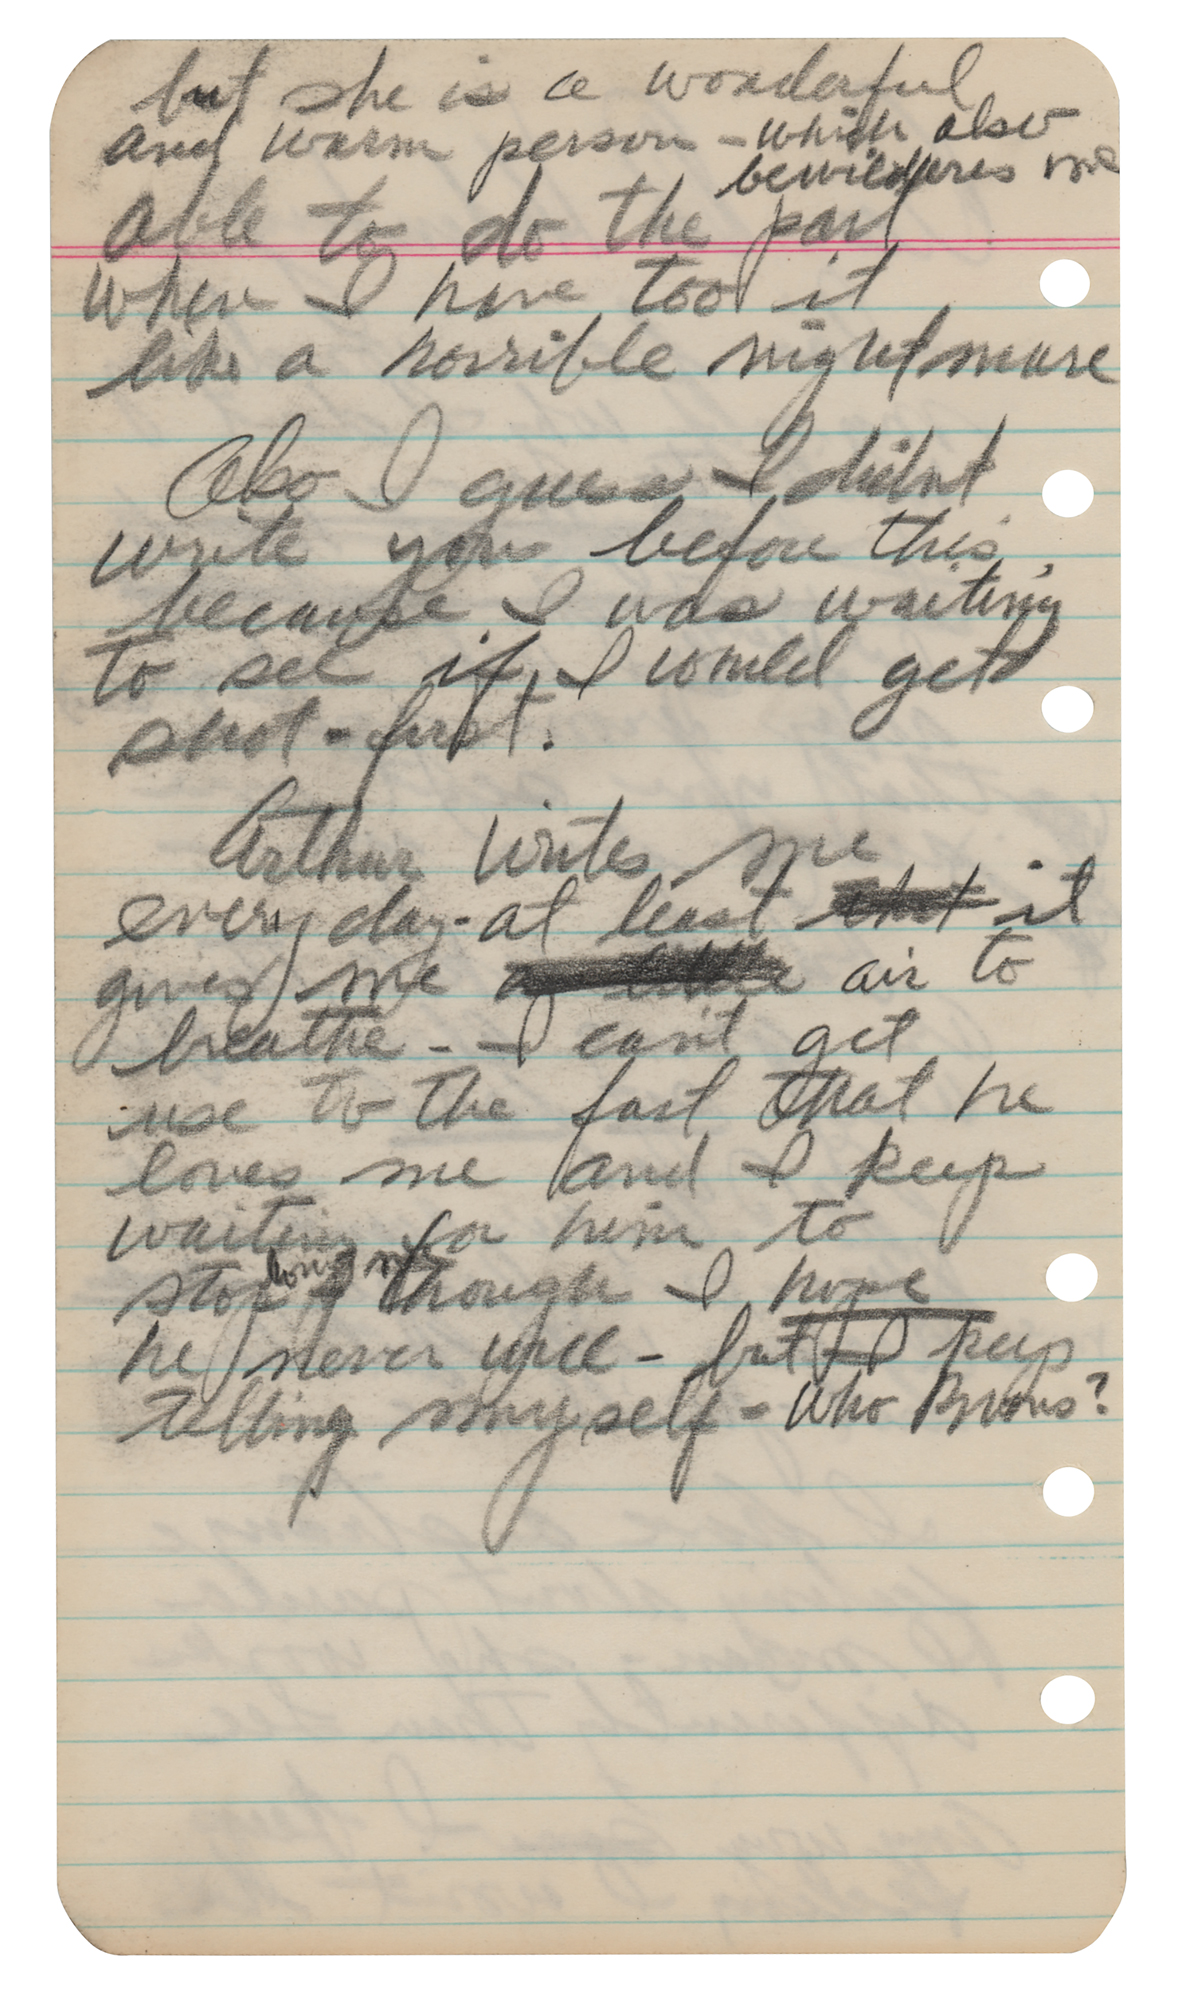 but she is a wonderful
and warm person - which also
bewilderes me
able to do the part
when I have too it
like a horrible nightmare
Also I guess I didnt
write you before this,
because I was waiting
to see if I would get
shot - first.
Arthur writes me
everyday - at least it
gives me a little air to
breathe - I can't get
use to the fact that he
loves me and I keep
waiting for him to
stop loving me though I hope
he never will - but I keep
telling myself - who knows?